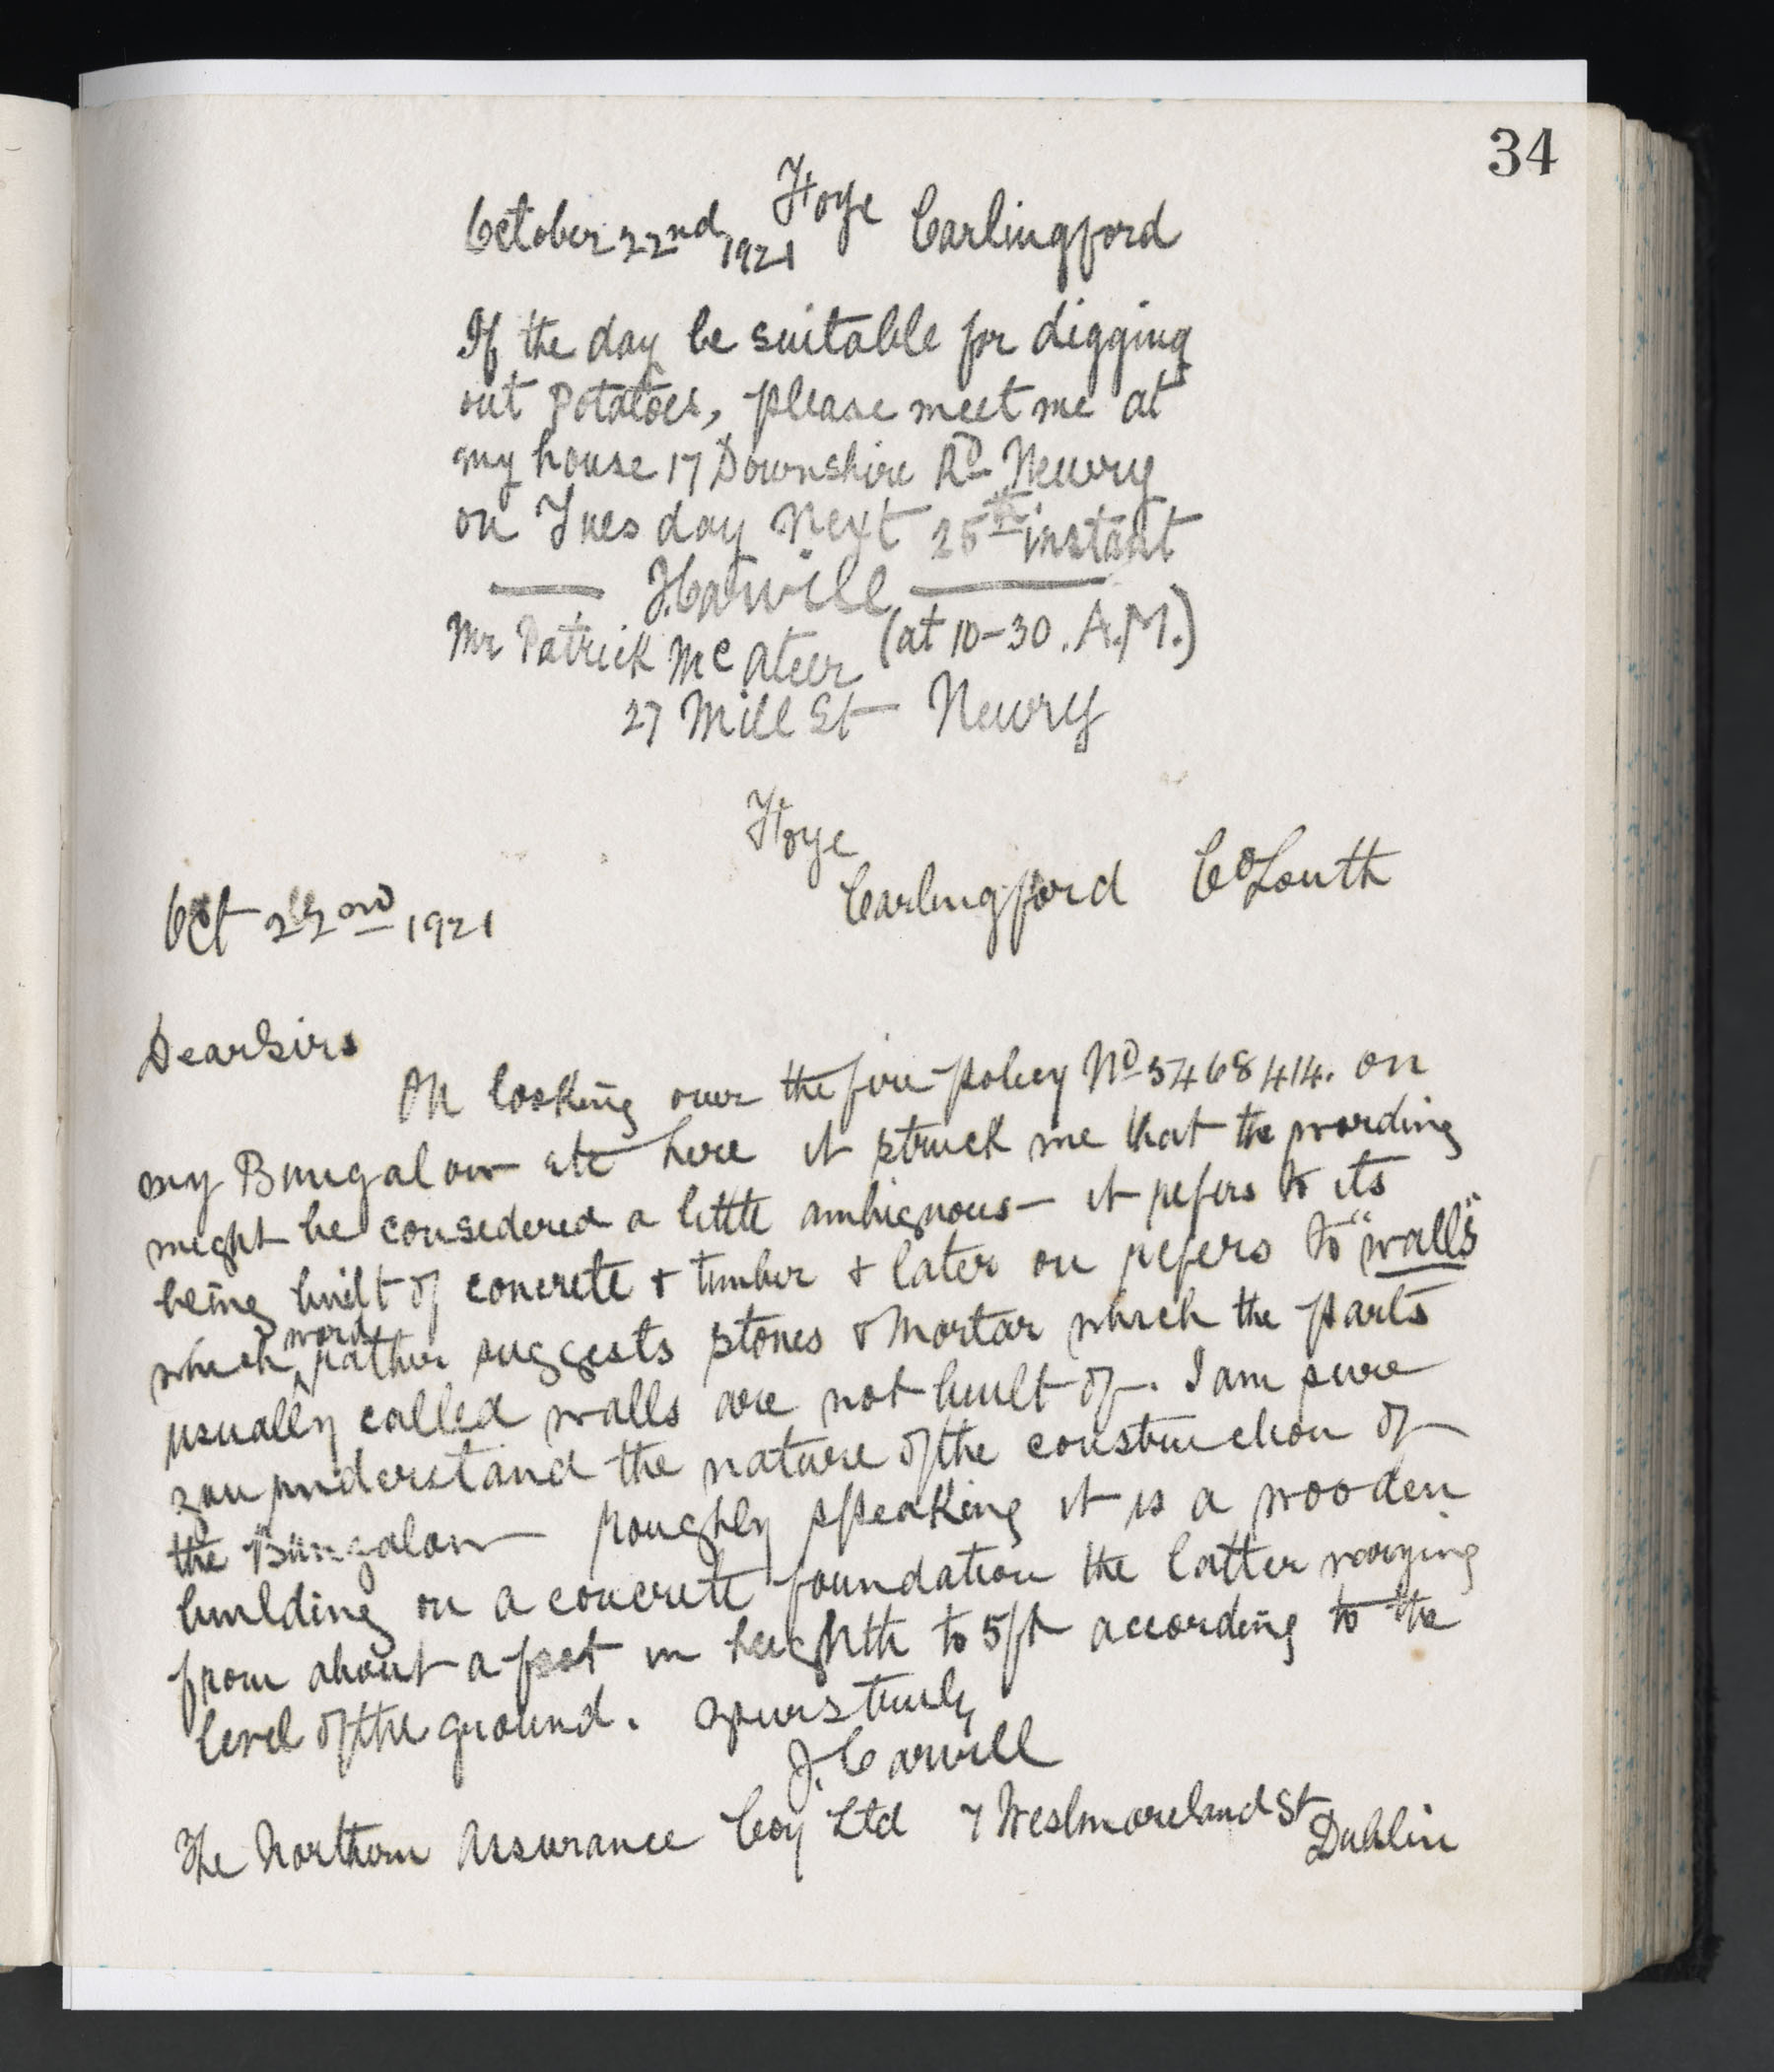 34
October 22nd 1921 Ffoye Carlingford
If the day be suitable for digging
out potatoes, please meet me at
my house 17 Downshire Rd Newry
on Tuesday next 25th instant
J. Carvill
(at 10-30. A.M.)
Mr Patrick McAteer
27 Mill St Newry
Carlingford Co Louth
Oct 22nd 1921
Dear Sirs
On looking over the fire policy No 5468414. on
my Bungalow etc here it struck me that the wording
might be considered a little ambiguous - it refers to its
being built of concrete & timber & later on refers to "walls"
which word rather suggests stones & mortar which the parts
usually called walls are not built of. I am sure
you understand the nature of the construction of
the Bungalow roughly speaking it is a wooden
building on a concrete foundation the latter varying
from about a foot in heighth to 5ft according to the
level of the ground. Yours truly
J. Carvill
The Northern Assurance Coy Ltd 7 Westmoreland St
Dublin